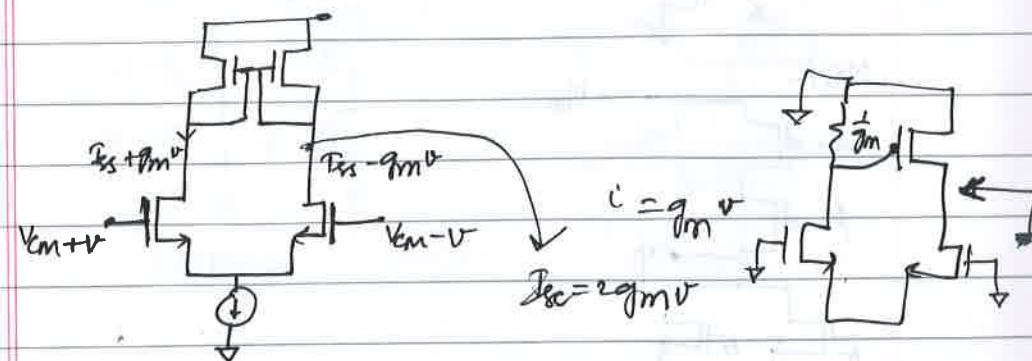 I_ss + g_m v
I_ss - g_m v
V_cm + v
V_cm - v
I_sc = 2 g_m v
i = g_m v
1/g_m